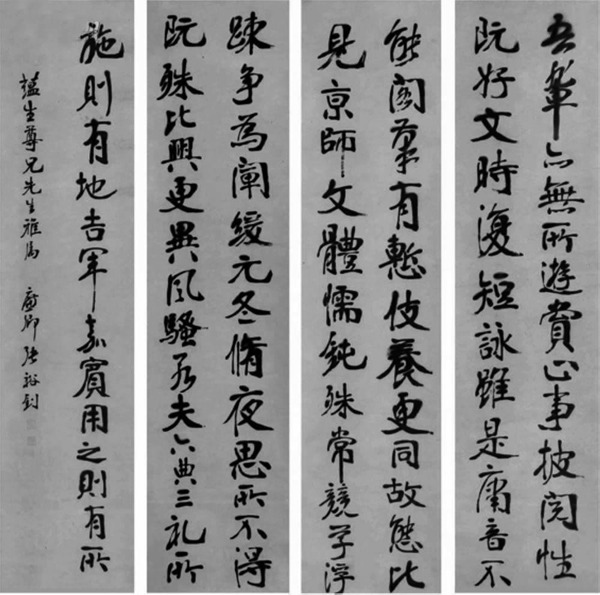 吾輩亦無所遊賞止事披閱性
既好文時復短詠雖是庸音不
能閣筆有慙伎養更同故態比
見京師文體懦鈍殊常競学浮
疎争為闡緩元冬脩夜思所不得
既殊比興更異風騷若夫六典三礼所
施則有地吉軍嘉賓用之則有所
生尊兄先生雅屬 廉卿張裕釗